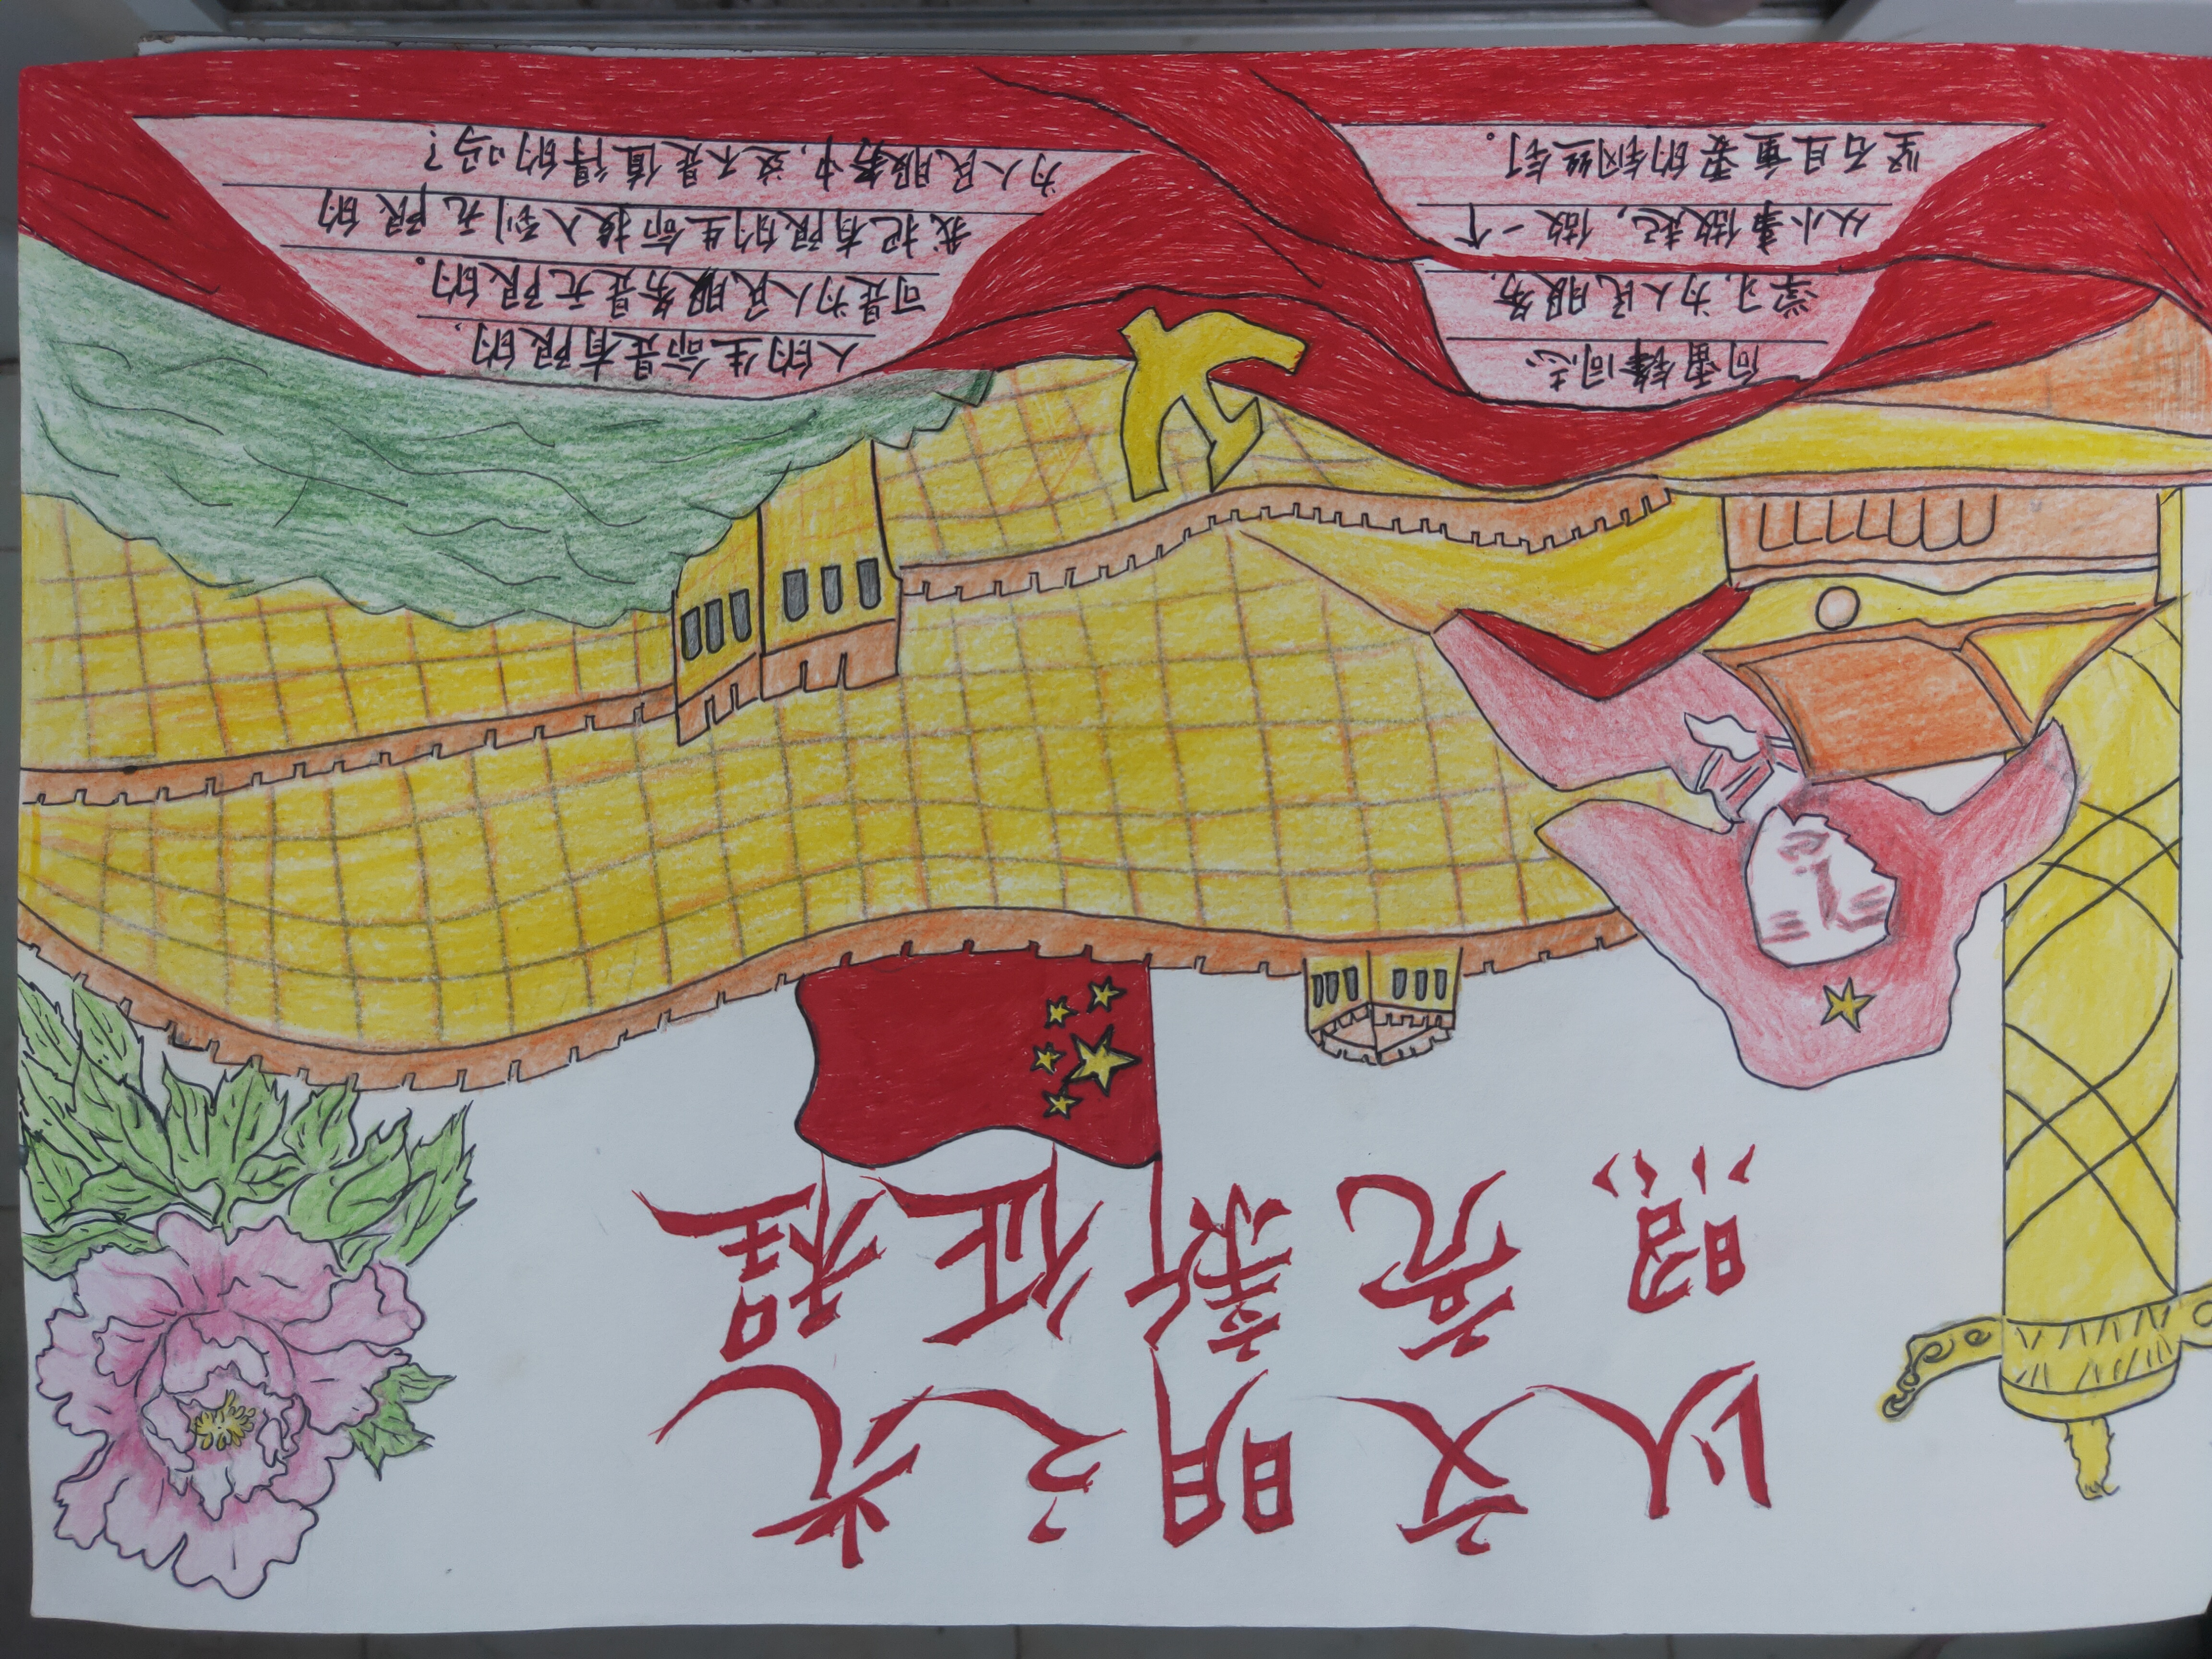 以文明之光
照亮新征程
向雷锋同志
学习,为人民服务,
从小事做起,做一个
坚石且重要的钢丝钉。
人的生命是有限的,
可是为人民服务是无限的。
我把有限的生命投入到无限的
为人民服务中,这不是值得的吗?